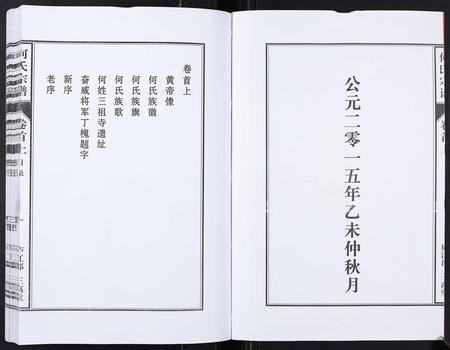 公元二零一五年乙未仲秋月
卷首上
黄帝像
何氏族徽
何氏族旗
何氏族歌
何姓三祖寺遗址
奋威将军丁槐题字
新序
老序
何氏宗谱
卷首上
目录
一